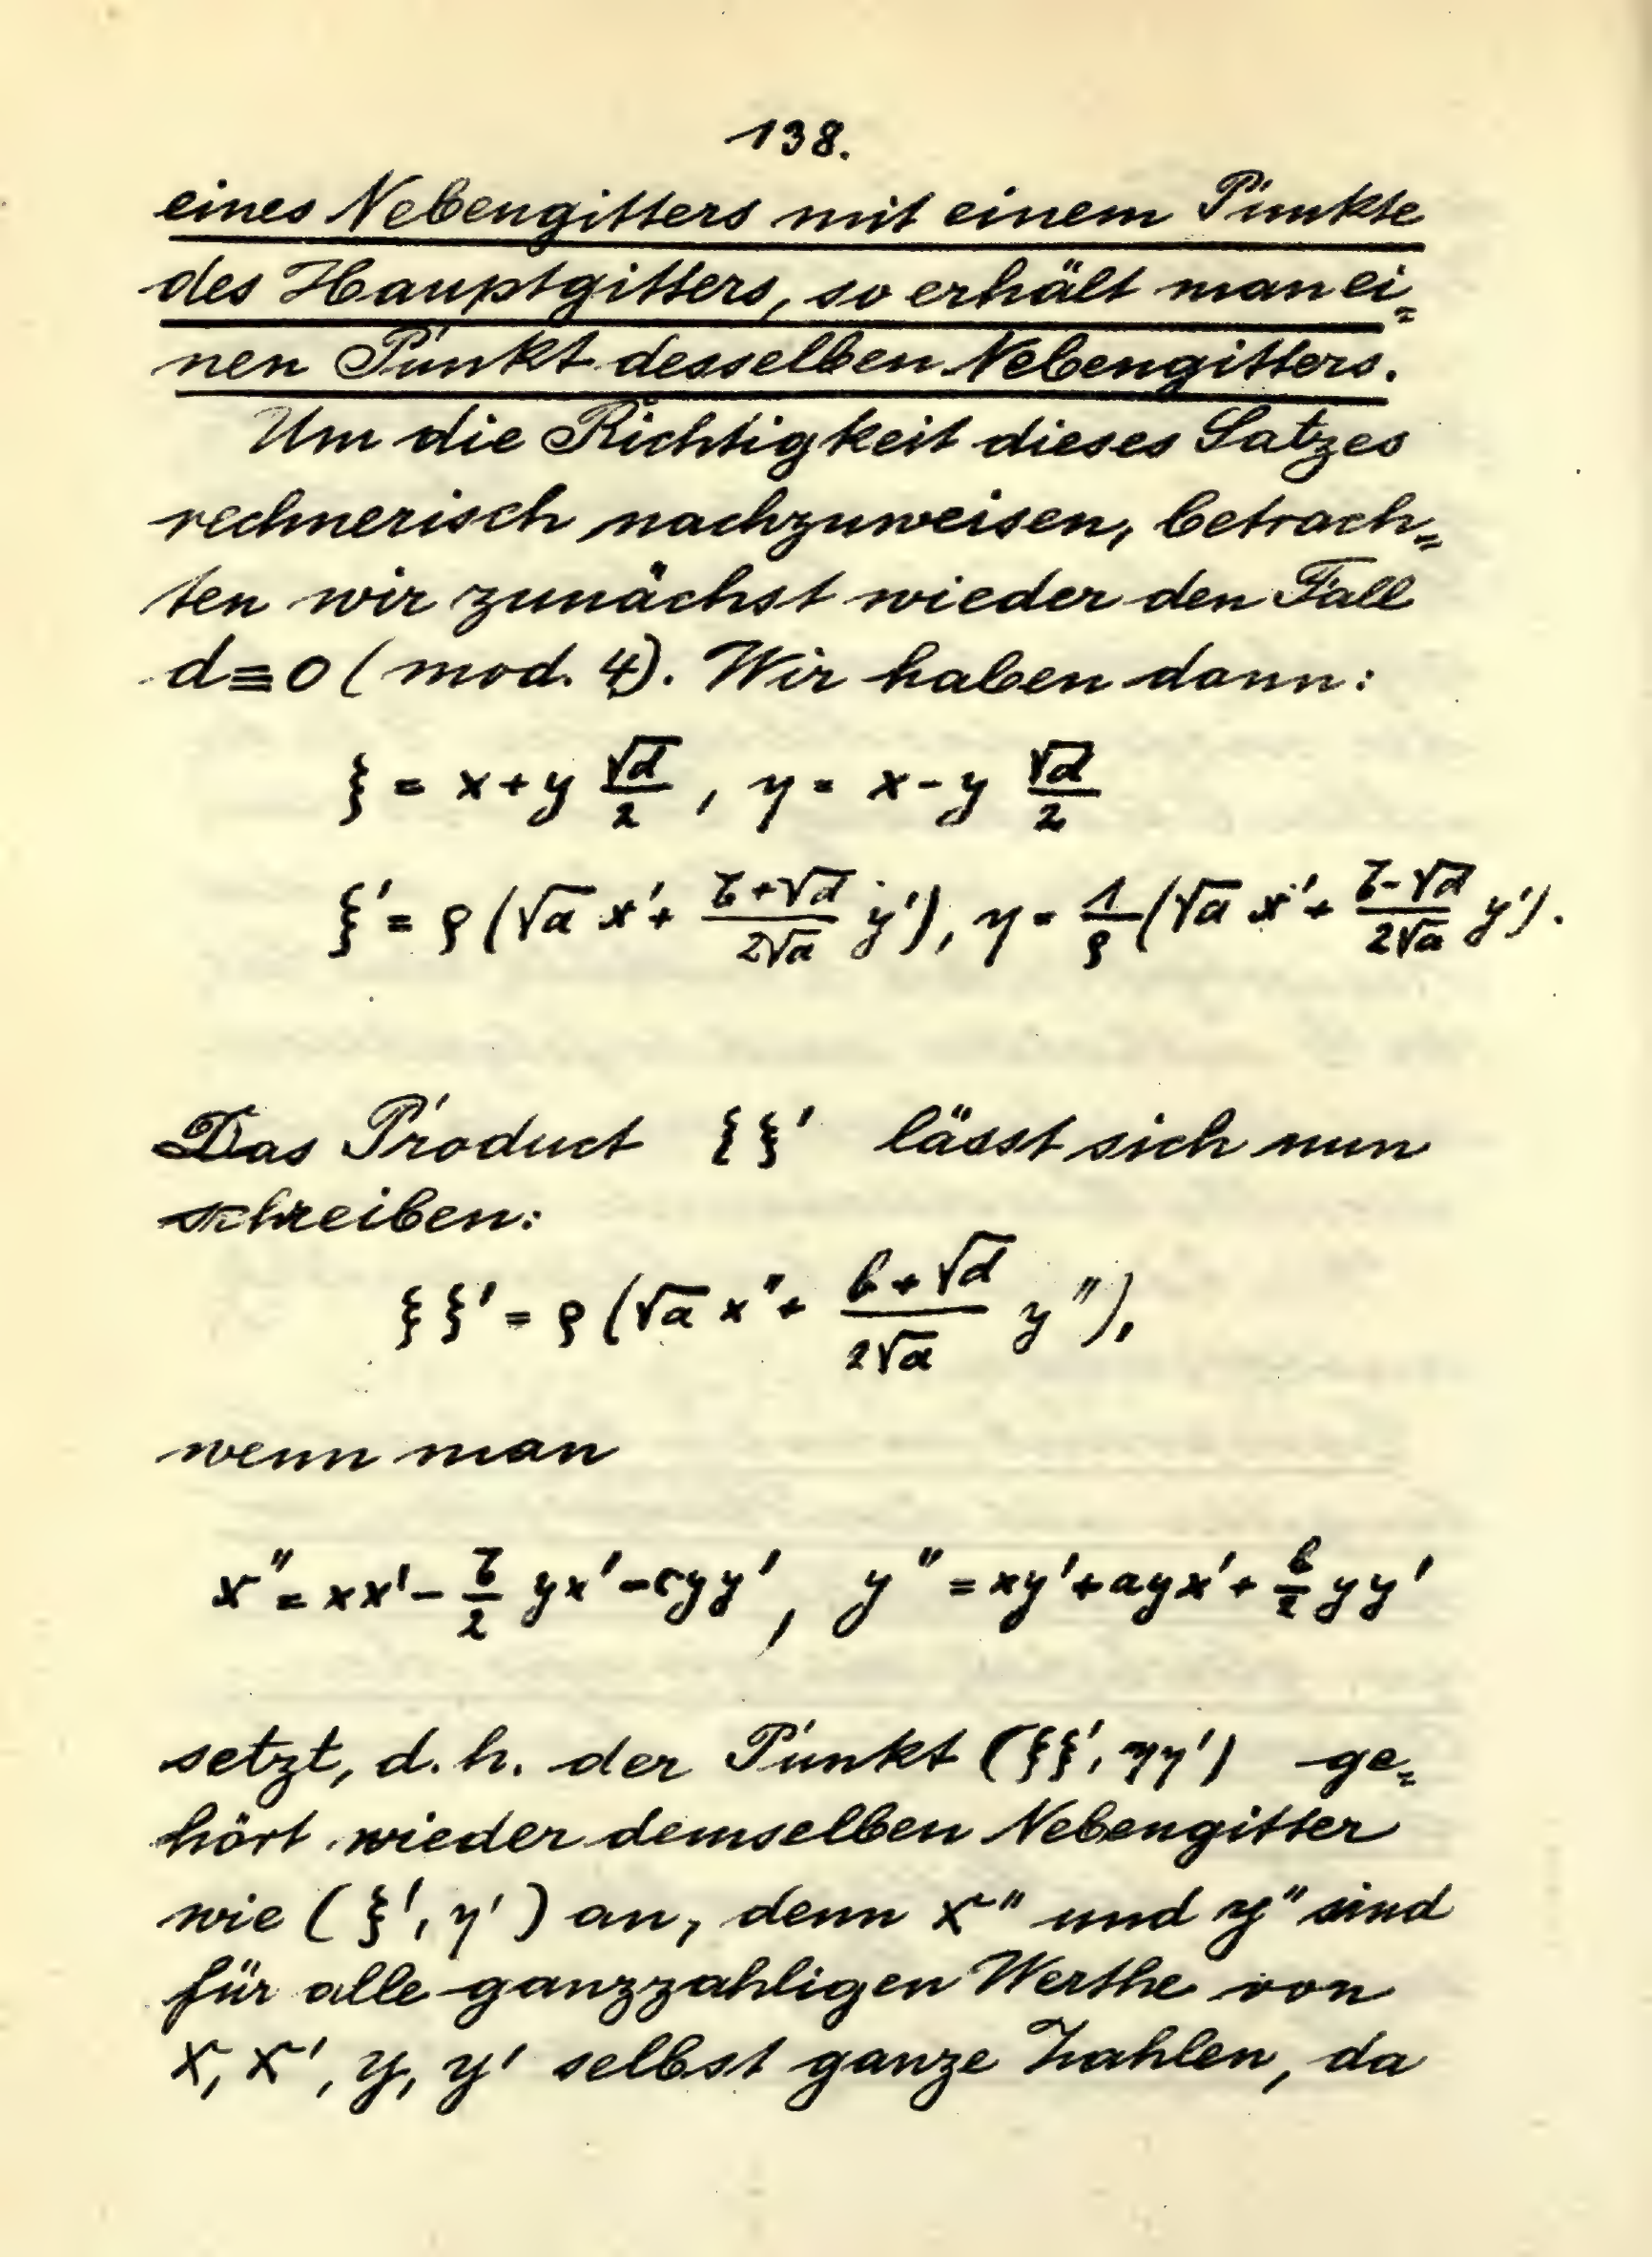 138.
eines Nebengitters mit einem Punkte
des Hauptgitters, so erhält man ei=
nen Punkt desselben Nebengitters.
Um die Richtigkeit dieses Satzes
rechnerisch nachzuweisen, betrach=
ten wir zunächst wieder den Fall
d≡0 (mod. 4). Wir haben dann:
ξ = x+y √d/2, η = x-y √d/2
ξ' = ρ(√a x' + (b+√d)/(2√a) y'), η = 1/ρ (√a x' + (b-√d)/(2√a) y').
Das Product ξξ' lässt sich nun
schreiben:
ξξ' = ρ(√a x'' + (b+√d)/(2√a) y''),
wenn man
x'' = xx' - b/2 yx' - cyy', y'' = xy' + ayx' + b/2 yy'
setzt, d. h. der Punkt (ξξ', ηη') ge=
hört wieder demselben Nebengitter
wie (ξ', η') an, denn x'' und y'' sind
für alle ganzzahligen Werthe von
x, x', y, y' selbst ganze Zahlen, da